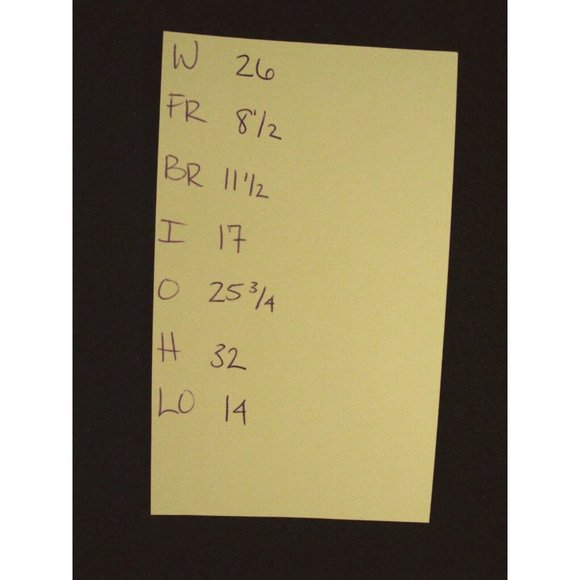 W 26
FR 8 1/2
BR 11 1/2
I 17
O 25 3/4
H 32
LO 14